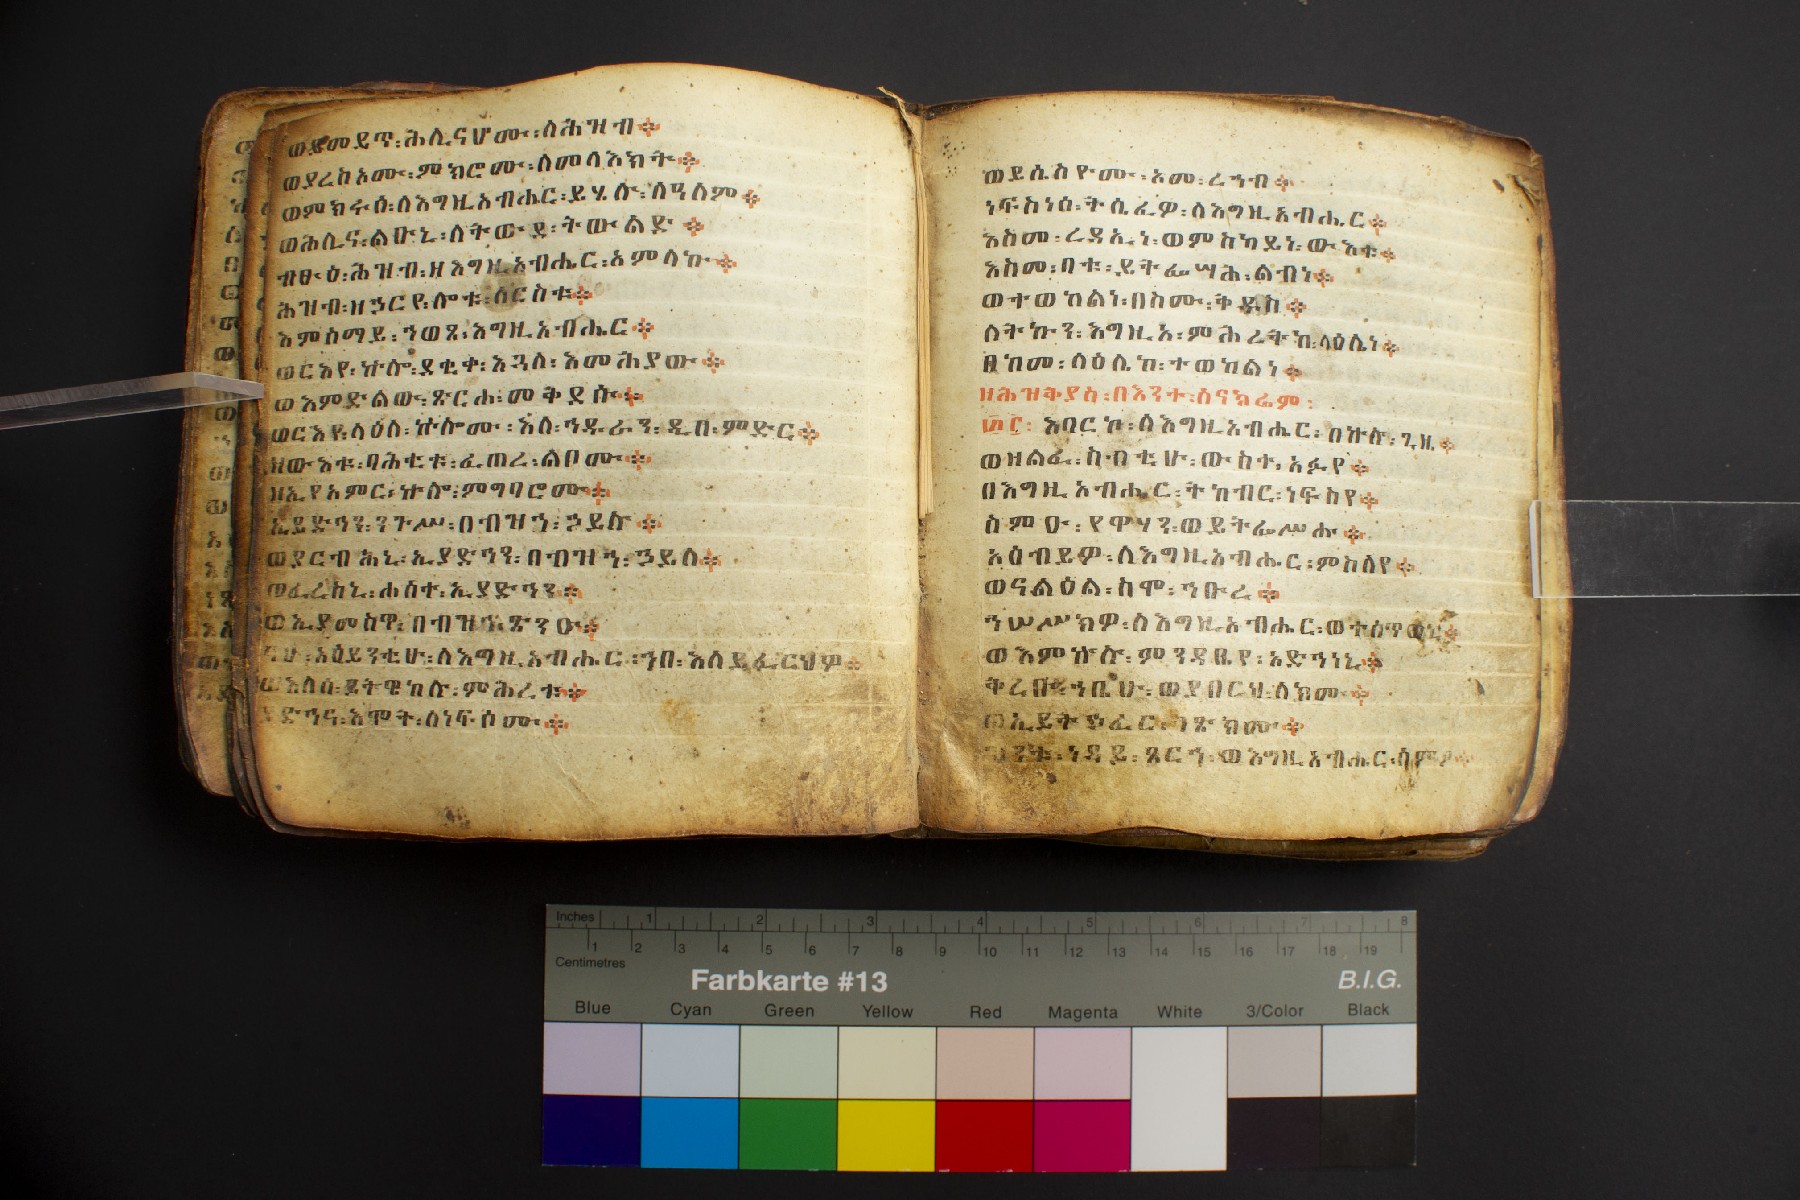 ወይመይጥ፡ሕሊናሆሙ፡ለሕዝብ፨
ወያረከአሙ፡ምክሮሙ፡ለመላእክት፨
ወምክሩሰ፡ለእግዚአብሔር፡ይሄሉ፡ለዓለም፨
ወሕሊና፡ልቡኒ፡ለትውደ፡ትውልድ፨
ብፁዕ፡ሕዝብ፡ዘእግዚአብሔር፡አምላኩ፨
ሕዝብ፡ዘኃርየ፡ሎቱ፡ለርስቱ፨
እምሰማይ፡ኀወጸ፡እግዚአብሔር፨
ወርእየ፡ኵሎ፡ደቂቀ፡እጓለ፡እመሕያው፨
ወእምድልው፡ጽርሐ፡መቅደሱ፨
ወርእየ፡ላዕለ፡ኵሎሙ፡እለ፡ኀዱራን፡ዲበ፡ምድር፨
ዘውእቱ፡ባሕቲቱ፡ፈጠረ፡ልቦሙ፨
ዘኢየአምር፡ኵሎ፡ምግባሮሙ፨
ኢይድኅን፡ንጉሥ፡በብዝኀ፡ኃይሉ፨
ወያርብሕኒ፡ኢያድኅን፡በብዝኀ፡ኃይሉ፨
ወፈረስኒ፡ሐሰተ፡ኢያድኅን፨
ወኢያመስጥ፡በብዝኀ፡ጽንዑ፨
ናሁ፡አዕይንቲሁ፡ለእግዚአብሔር፡ኀበ፡እለ፡ይፈርህዎ፨
ወእለሰ፡ይትዌከሉ፡ምሕረቱ፨
ያድኅና፡እሞት፡ለነፍሶሙ፨
ወይሴስዮሙ፡አመ፡ረኀብ፨
ነፍስነሰ፡ትሴፈዎ፡ለእግዚአብሔር፨
እስመ፡ረዳኢነ፡ወምስካይነ፡ውእቱ፨
እስመ፡በቱ፡ይትፌሣሕ፡ልብነ፨
ወተወከልነ፡በስሙ፡ቅዱስ፨
ለትኩን፡እግዚአ፡ምሕረትከ፡ላዕሌነ፨
በከመ፡ላዕሌከ፡ተወከልነ፨
ዘሕዝቅያስ፡በእንተ፡ሰናክሬም፡
፴፫፡እባርኮ፡ለእግዚአብሔር፡በኵሉ፡ጊዜ፨
ወዘልፈ፡ስብቲሁ፡ውስተ፡አፉየ፨
በእግዚአብሔር፡ትከብር፡ነፍስየ፨
ስምዑ፡የዋሃን፡ወይትፌሥሑ፨
አዕብይዎ፡ለእግዚአብሔር፡ምስለየ፨
ወናልዕል፡ስሞ፡ኀቡረ፨
ኀሠሥክዎ፡ለእግዚአብሔር፡ወተሰጥወኒ፨
ወእምኵሉ፡ምንዳቤየ፡አድኀነኒ፨
ቅረቡ፡ኀቤሁ፡ወያበርህ፡ለክሙ፨
ወኢይትኀፈር፡ገጽክሙ፨
ዝንቱ፡ነዳይ፡ጸርኀ፡ወእግዚአብሔር፡ሰምዖ፨
Inches 1 2 3 4 5 6 7 8
1 2 3 4 5 6 7 8 9 10 11 12 13 14 15 16 17 18 19
Centimetres
Farbkarte #13 B.I.G.
Blue Cyan Green Yellow Red Magenta White 3/Color Black